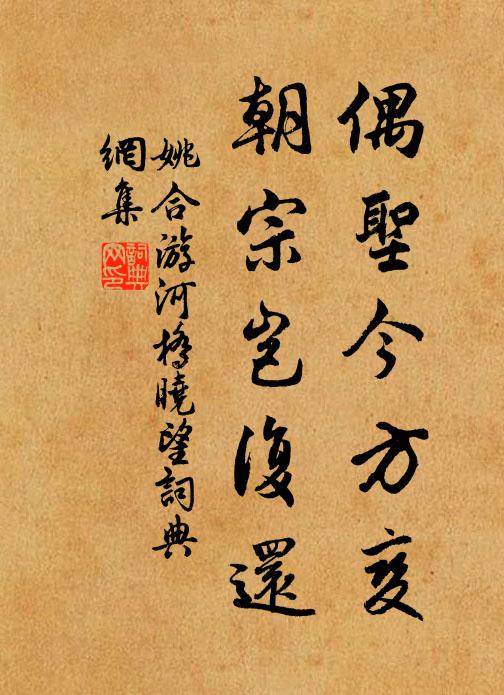 偶聖今方變
朝宗豈復還
姚合游河橋曉望詞典
網集
詞典網印